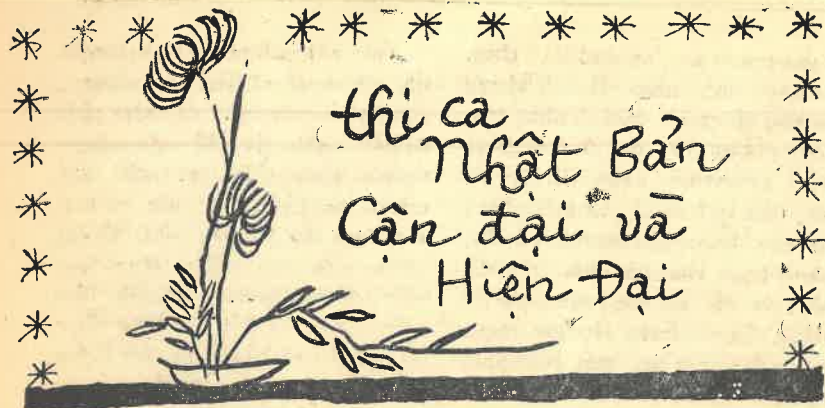 thi ca
Nhật Bản
Cận đại và
Hiện Đại